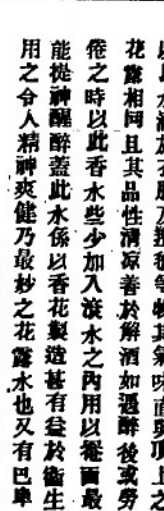 花露相同且其品性清凉善於解酒如遇醉後或勞
倦之時以此香水些少加入滾水之內用以搵面最
能提神醒醉蓋此水係以香花製造甚有益於衛生
用之令人精神爽健乃最妙之花露水也又有巴車